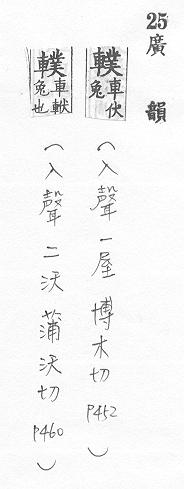 25 廣韻
轐車伏兔
（入聲一屋 博木切 P452）
轐車軾兔也
（入聲二沃 蒲沃切 P460）